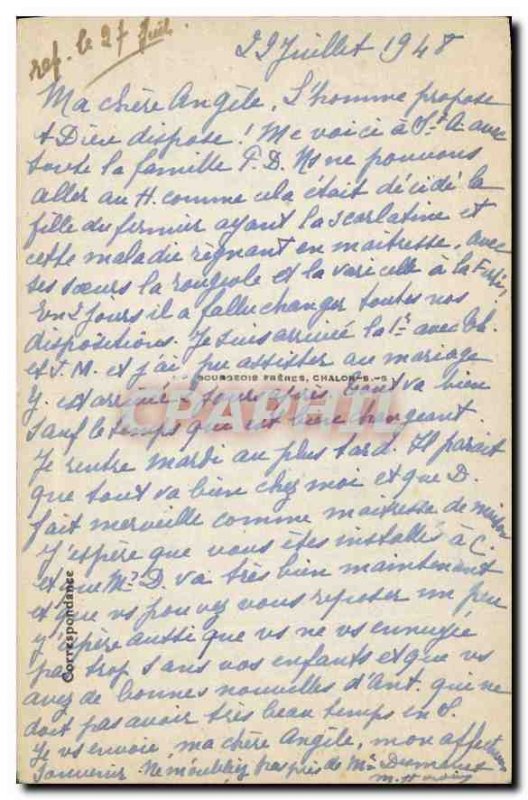 rep. le 27 Juil.
22 Juillet 1948
Ma chère Angèle, L'homme propose
& Dieu dispose! Me voici à St. A. avec
toute la famille P. D. Ns ne pouvons
aller au H. comme cela était décidé la
fille du fermier ayant la scarlatine et
cette maladie règnant en maitresse, avec
ses sœurs la rougeole et la varicelle à la
En 2 jours il a fallu changer toutes nos
dispositions. Je suis arrivée la 1re avec
et J. M. et j'ai pu assister au mariage
BOURGEOIS FRÈRES, CHALON-S.-S.
Y. est arrivé 2 jours après. Tout va bien
CPARAMA
sauf le temps que est bien changeant.
Je rentre mardi au plus tard. Il parait
que tout va bien chez moi et que D.
fait merveille comme maitresse de maison
J'espère que vous êtes installés à C.
et que Mr D. va très bien maintenant
et que vs pouvez vous reposer un peu
J'espère aussi que vs ne vs ennuyée
pas trop sans vos enfants et que vs
avez de bonnes nouvelles d'Ant. qui ne
doit pas avoir très beau temps en S.
Je vs envoie, ma chère Angèle, mon affectueux
souvenir. Ne m'oubliez pas près de Mr
Correspondance